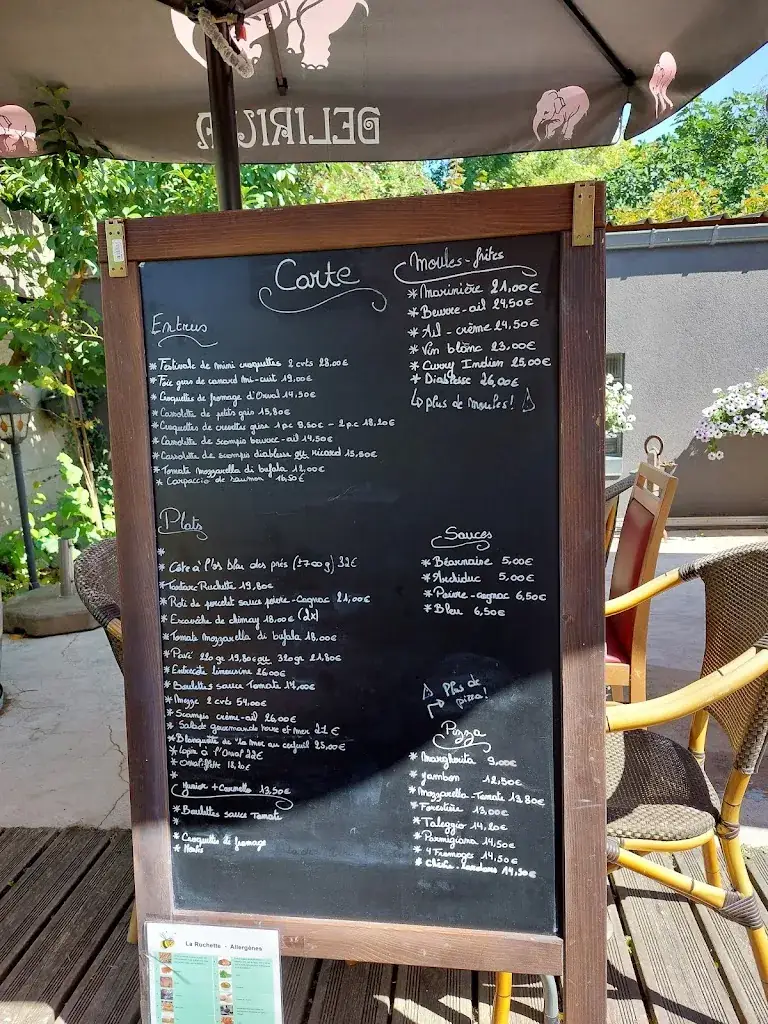 DELIRIUM
Carte
Entrees
* Festivale de mini croquettes 2 cvts 28.00€
* Foie gras de canard mi-cuit 19,00€
* Croquettes de fromage d'Orval 14,50€
* Cassolette de petits gris 15,80€
* Croquettes de crevettes grise 1 pc 9,50€ - 2 pc 18,20€
* Cassolette de scampis beurre-ail 14,50€
* Cassolette de scampis diabless Ricard 15,50€
* Tomate mozzarella di bufala 12,00€
* Carpaccio de saumon 16,50€
Moules-frites
* Marinière 21,00€
* Beurre-ail 24,50€
* Ail-crème 24,50€
* Vin blanc 23,00€
* Curry Indien 25,00€
* Diablesse 26,00€
↳ plus de moules!
Plats
*
* Côte à l'os bleu des prés 32€
* Tartare Ruchette 19,80€
* Roti de porcelet sauce poivre-Cognac 21,00€
* Escavèche de chimay 18,00€ (2x)
* Tomate mozzarella di bufala 18,00€
* Pavé 220gr 19,80€ ou 320gr 21,80€
* Entrecôte limousine 26.00€
* Boulettes sauce Tomate 14,00€
* Mezze 2 cvts 54,00€
* Scampis crème-ail 26,00€
* Salade gourmande terre et mer 21€
* Blanquette de la mer au cerfeuil 25,00€
* Lapin à l'Orval 22€
* Orvaliflette
*
* Junior + Cornello 13,50€
* Boulettes sauce Tomate
*
* Croquette de fromage
*
Sauces
* Béarnaise 5,00€
* Archiduc 5,00€
* Poivre-cognac 6,50€
* Bleu 6,50€
Plus de
pizza!
Pizza
* Margherita 9,00€
* Jambon 12,50€
* Mozzarella-Tomate 13,80€
* Forestière 13,00€
* Taleggio 14,20€
* Parmigiana 14,50€
* 4 Fromages 14,50€
* Chèvre-lardons 14,50€
La Ruchette - Allergènes